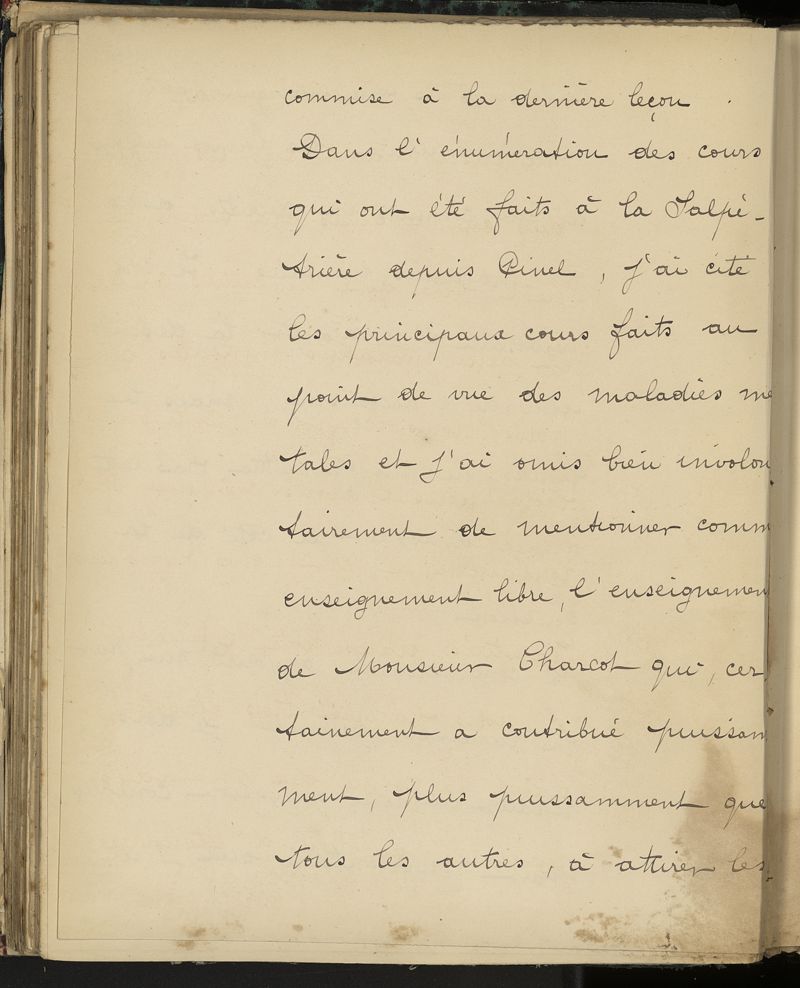 commise à la dernière leçon.
Dans l'énumération des cours
qui ont été faits à la Salpê-
trière depuis Pinel, j'ai cité
les principaux cours faits au
point de vue des maladies me
tales et j'ai omis bien involon
tairement de mentionner comm
enseignement libre, l'enseignemen
de Monsieur Charcot qui, cer
tainement a contribué puissam
ment, plus puissamment que
tous les autres, à attirer les